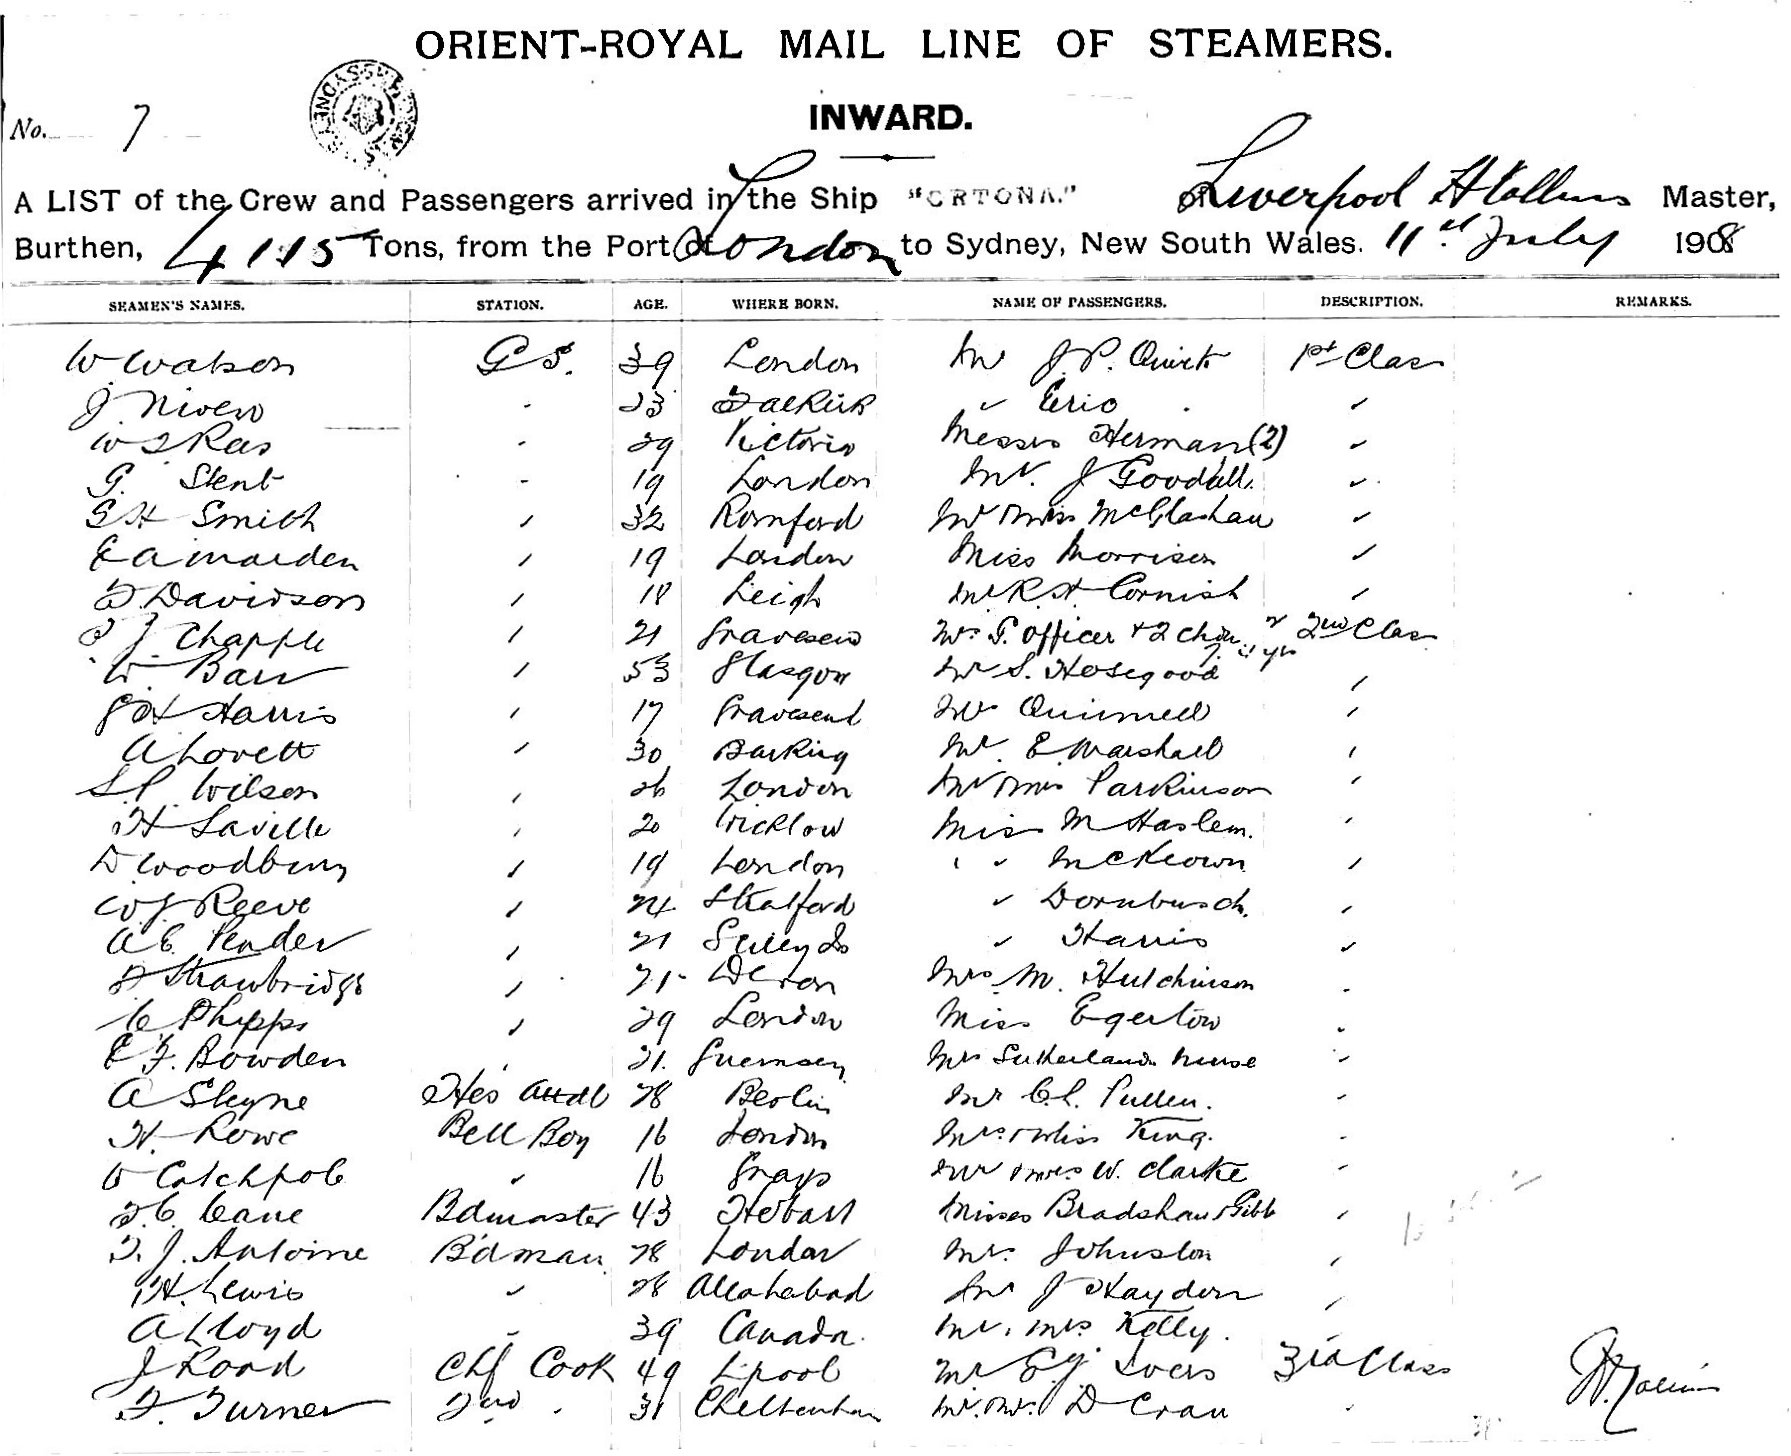 ORIENT-ROYAL MAIL LINE OF STEAMERS.
No. 7
INWARD.
A LIST of the Crew and Passengers arrived in the Ship "ORTONA" of Liverpool A Collins Master,
Burthen, 4115 Tons, from the Port of London to Sydney, New South Wales. 11th July 1908
SEAMEN'S NAMES. STATION. AGE. WHERE BORN. NAME OF PASSENGERS. DESCRIPTION. REMARKS.
W Watson G S. 39 London Mr J. P. Quirk 1st Class
J Niven " 23 Falkirk " Eric "
W Rae " 29 Victoria Messrs Herman (2) "
G. Stent " 19 London Mr. J Goodall "
G H Smith " 32 Romford Mr Miss McGlashan "
E A Marden " 19 London Miss Morrison "
F Davidson " 18 Leigh Mr R. H. Cornish "
J. Chapple " 21 Gravesend Mrs G. Officer & 2 chdn 2nd Class
W Barr " 53 Glasgow Mr S. Hosegood "
G H Harris " 17 Gravesend Mr Quinnell "
A Lovett " 30 Barking Mr. E Marshall "
S. P. Wilson " 26 London Mr Mrs Parkinson "
H Saville " 20 Wicklow Miss M Haslem. "
D Woodbury " 19 London " " McKeown "
W J Reeve " 24 Stratford " Dornbusch. "
A C Pender " 21 " Harris "
F Strawbridge " 21 Devon Mrs M. Hutchinson "
C Phipps " 29 London Miss Egerton "
E F. Bowden " 21. Guernsey Mrs Sutherland nurse "
A Sleyne Hos Attdt 28 Berlin Mr C. L. Pullen. "
H Rowe Bell Boy 16 London Mrs & Miss King. "
Catchpole " 16 Grays Mr Mrs W. Clarke "
F. C. Cane Bdmaster 43 Hobart Misses Bradshaw & Gibb "
F. J. Antoine Bdman 28 London Mr. Johnston "
H. Lewis " 28 Allahabad Mr J Haydon "
A Lloyd " 39 Canada. Mr. Mrs Kelly. "
J Road Chf Cook 49 L'pool Mr E. J. Ivers 3rd Class
F. Turner 2nd " 31 Cheltenham Mr. Mrs D Cran "
A Collins